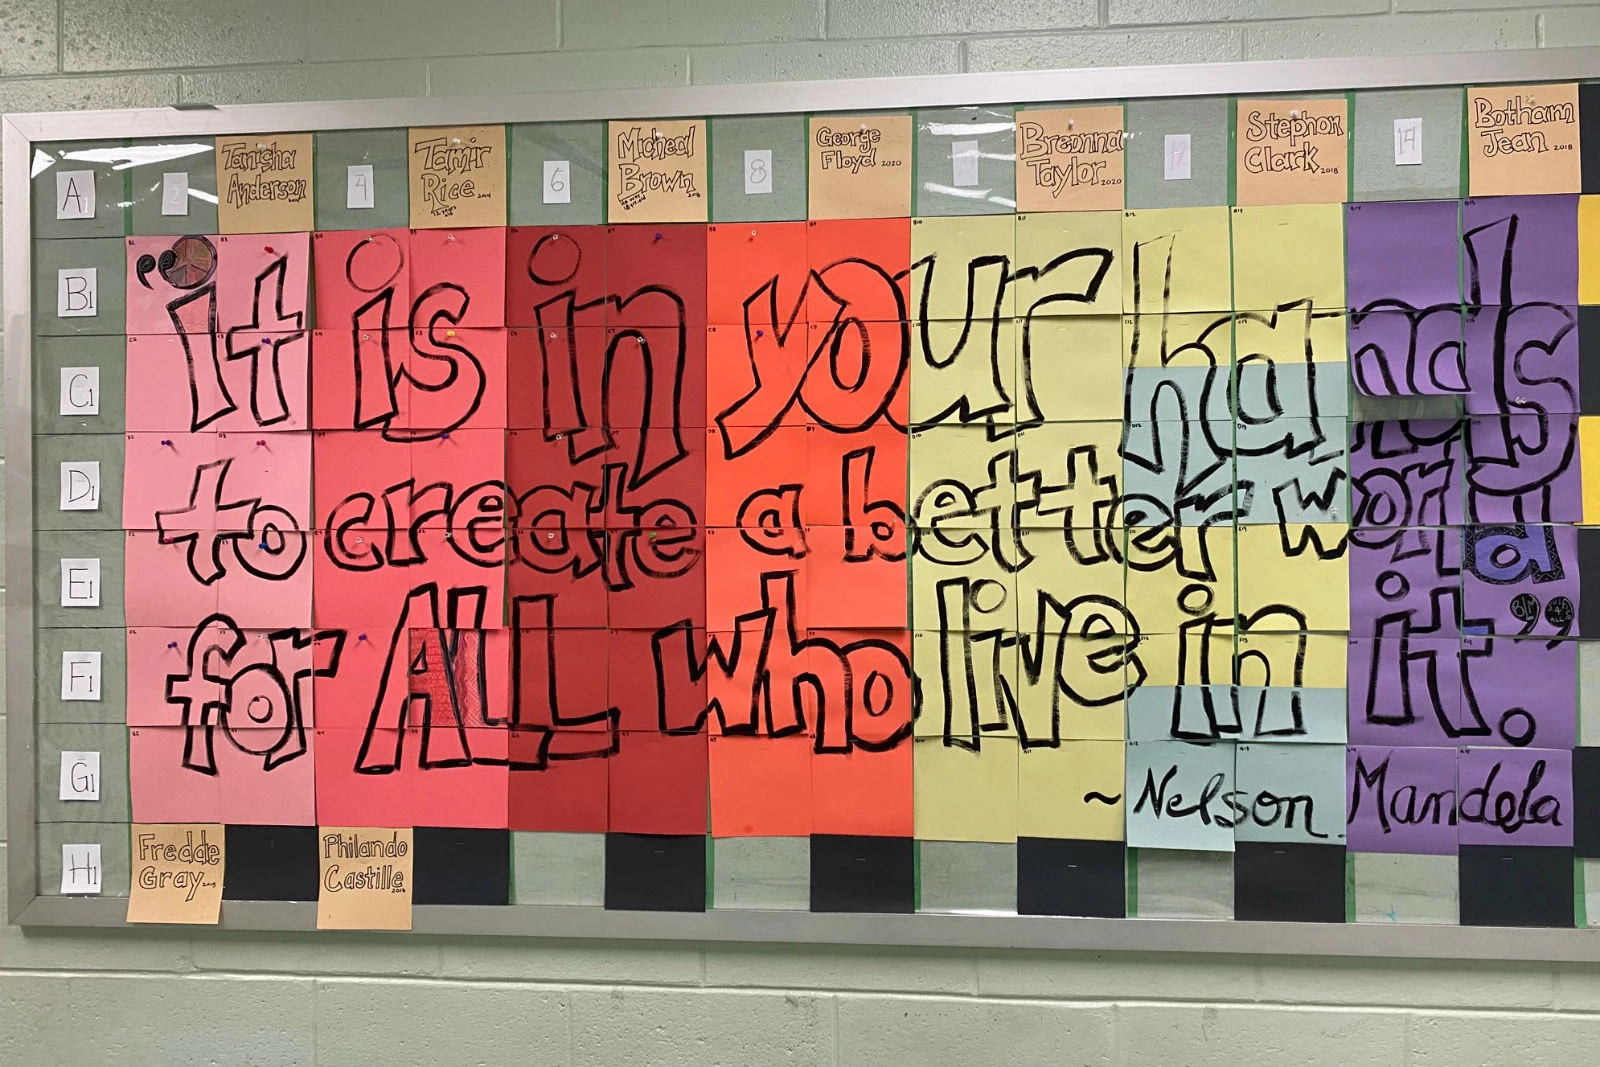 A1 2 Tanisha 4 Tamir 6 Micheal 8 George 10 Breonna 12 Stephon 14 Botham
Anderson Rice 2014 Brown Floyd 2020 Taylor 2020 Clark 2018 Jean 2018
B1 C1 "it is in your hands
D1 to create a better world
E1 BLM
F1 for ALL who live in it."
G1 ~Nelson Mandela
H1 Fredde Philando
Gray 2015 Castille 2016